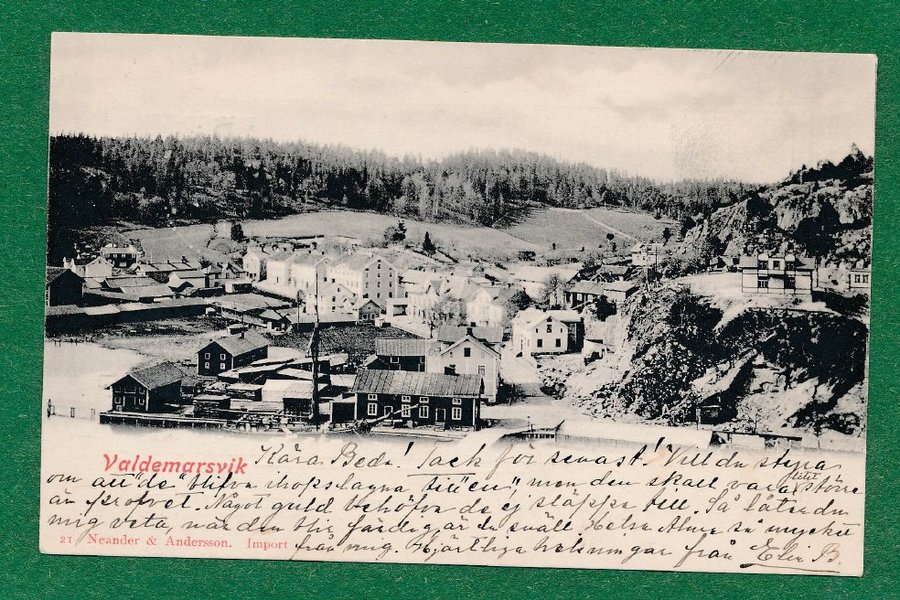 Valdemarsvik
Kära Beda! Tack for senast! Vill du styra
om att de blifva ihopslagna men den skall vara större
litet
än profvet. Något guld behöfva de ej släppa till. Så låter du
mig veta, när den blir färdig är du snäll. Helsa så mycket
från mig. Hjärtliga helsningar från B.
21 Neander & Andersson. Import